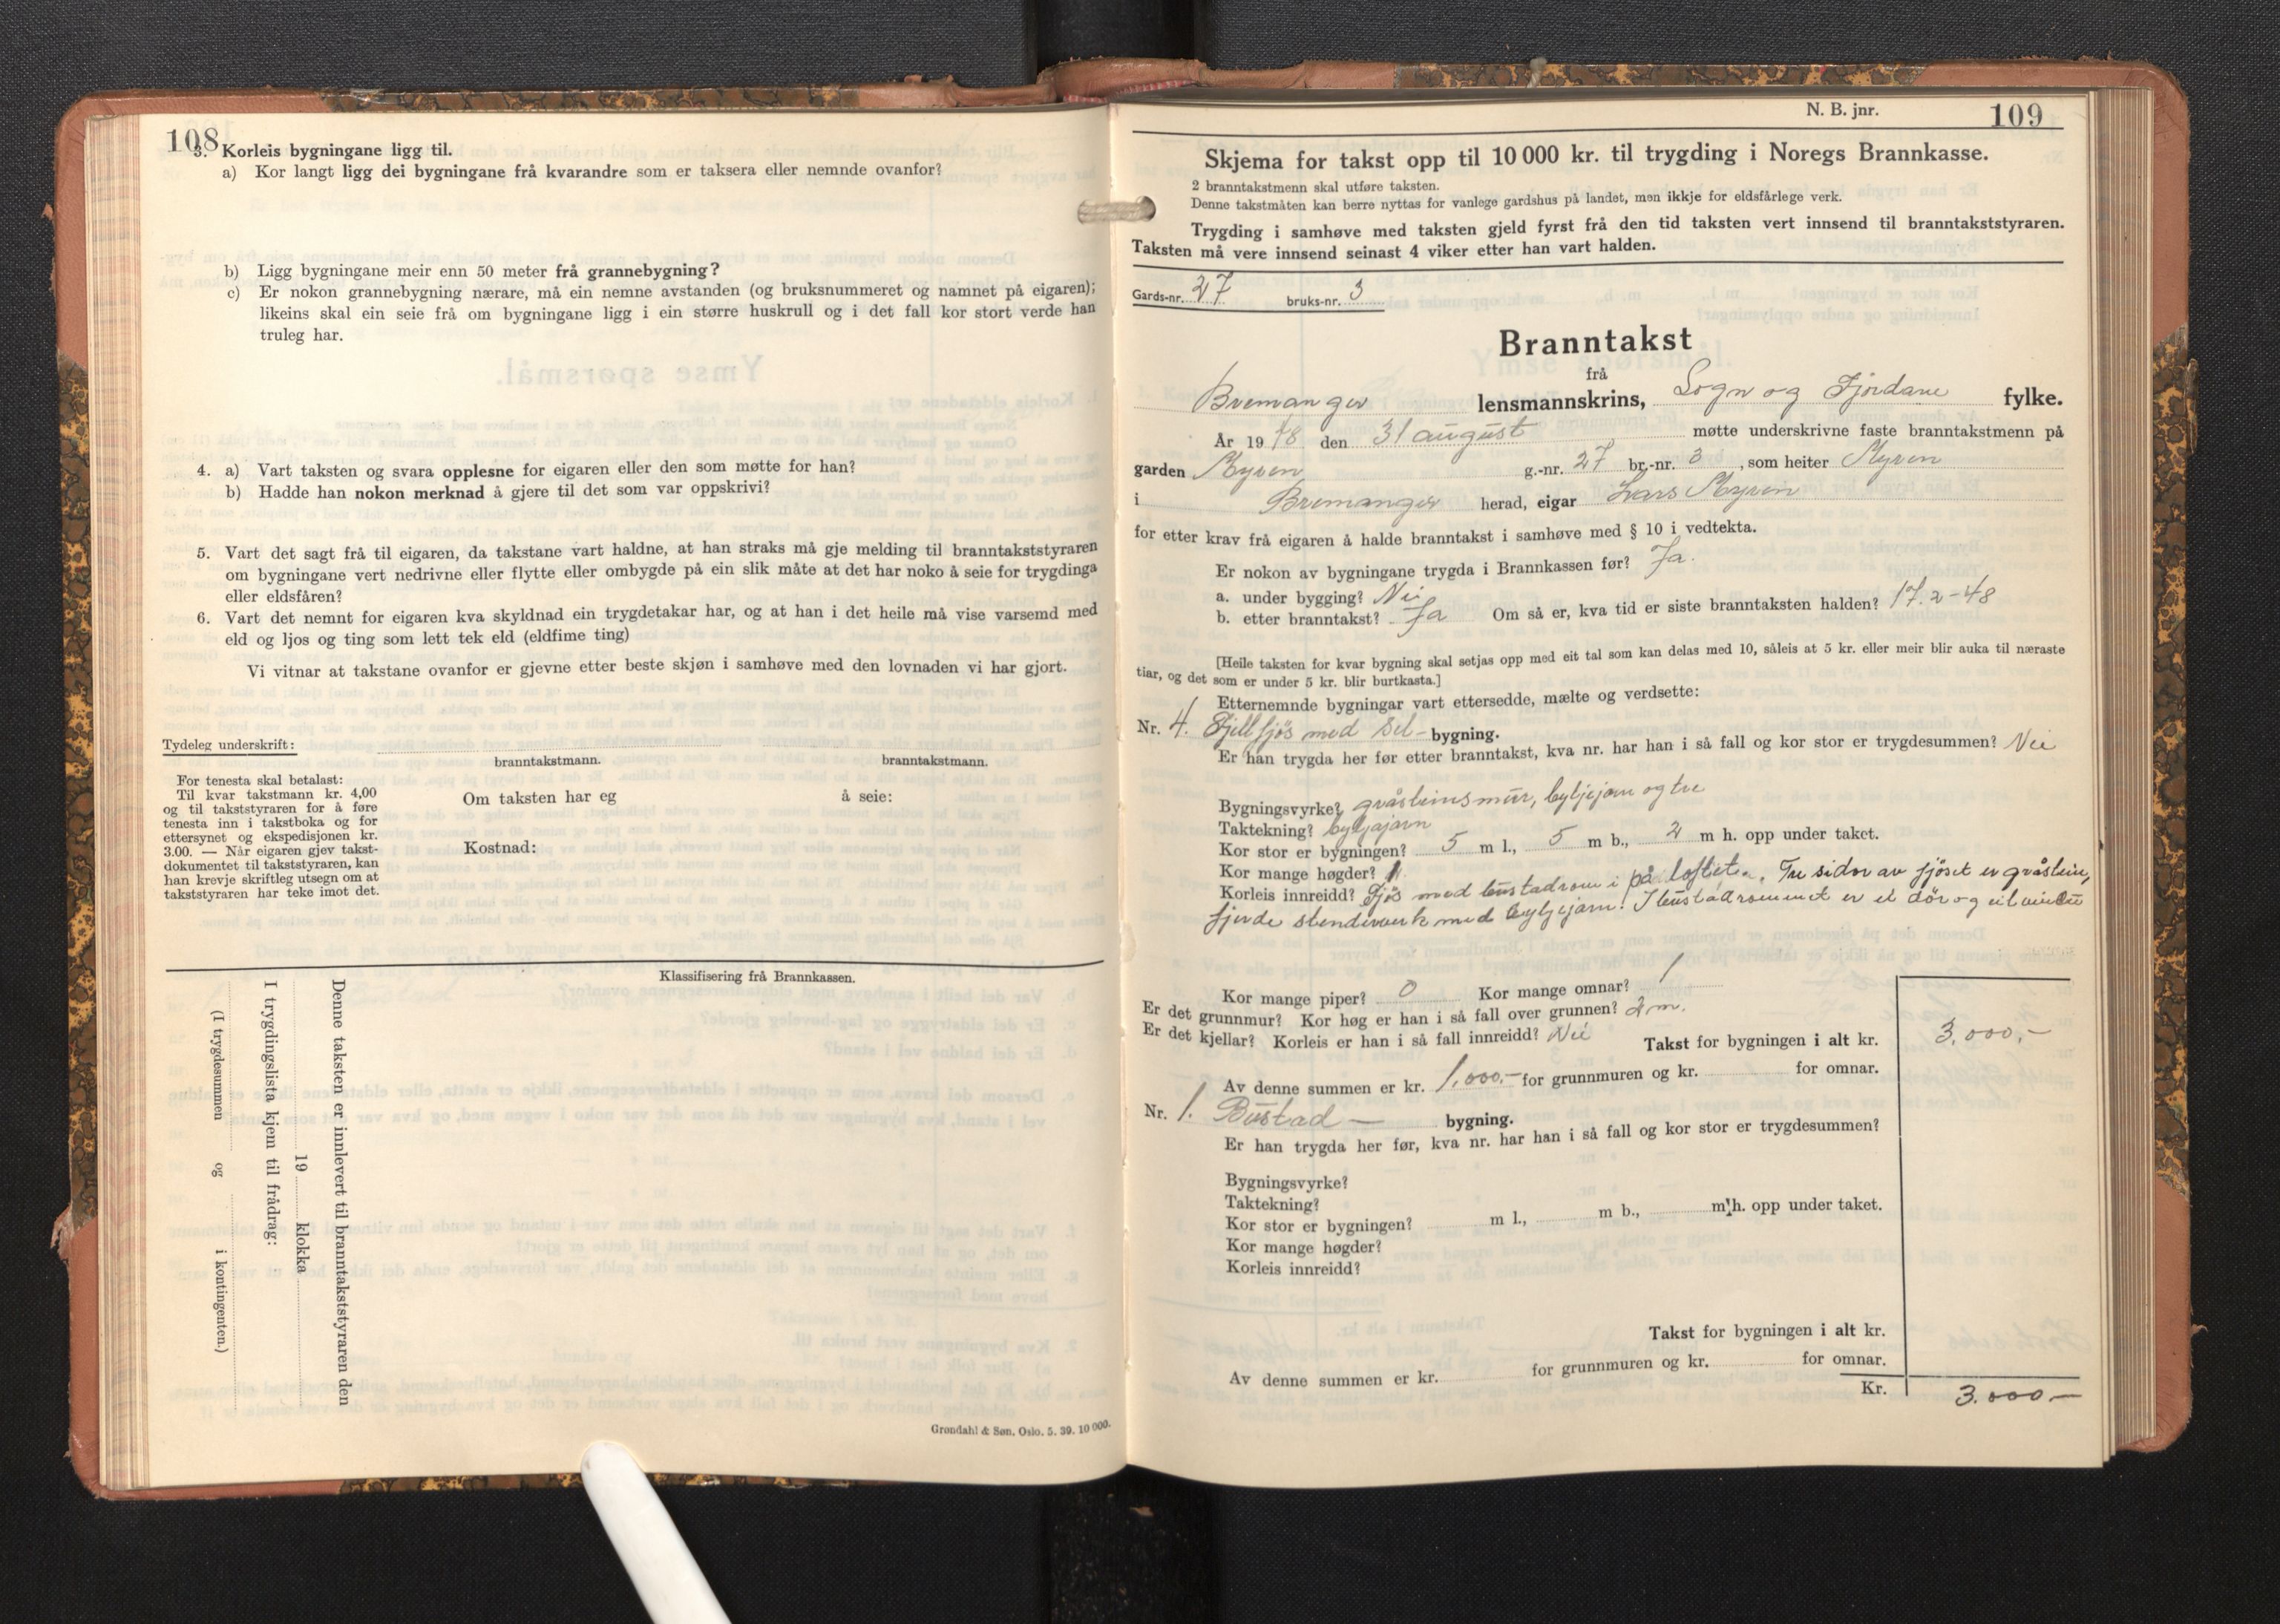 108
3. Korleis bygningane ligg til.
a) Kor langt ligg dei bygningane frå kvarandre som er taksera eller nemnde ovanfor?
b) Ligg bygningane meir enn 50 meter frå grannebygning?
c) Er nokon grannebygning nærare, må ein nemne avstanden (og bruksnummeret og namnet på eigaren);
likeins skal ein seie frå om bygningane ligg i ein større huskrull og i det fall kor stort verde han
truleg har.
4. a) Vart taksten og svara opplesne for eigaren eller den som møtte for han?
b) Hadde han nokon merknad å gjere til det som var oppskrivi?
5. Vart det sagt frå til eigaren, da takstane vart haldne, at han straks må gje melding til branntakststyraren
om bygningane vert nedrivne eller flytte eller ombygde på ein slik måte at det har noko å seie for trygdinga
eller eldsfåren?
6. Vart det nemnt for eigaren kva skyldnad ein trygdetakar har, og at han i det heile må vise varsemd med
eld og ljos og ting som lett tek eld (eldfime ting)
Vi vitnar at takstane ovanfor er gjevne etter beste skjøn i samhøve med den lovnaden vi har gjort.
Tydeleg underskrift:
branntakstmann. branntakstmann.
For tenesta skal betalast:
Til kvar takstmann kr. 4,00
og til takststyraren for å føre
tenesta inn i takstboka og for
ettersynet og ekspedisjonen kr.
3.00. — Når eigaren gjev takst-
dokumentet til takststyraren, kan
han krevje skriftleg utsegn om at
takststyraren har teke imot det.
Om taksten har eg å seie:
Kostnad:
Klassifisering frå Brannkassen.
Denne taksten er innlevert til branntakststyraren den
19 klokka
I trygdingslista kjem til frådrag:
(I trygdesummen og i kontingenten.)
Grøndahl & Søn, Oslo. 5. 39. 10 000.
N. B. jnr. 109
Skjema for takst opp til 10 000 kr. til trygding i Noregs Brannkasse.
2 branntakstmenn skal utføre taksten.
Denne takstmåten kan berre nyttas for vanlege gardshus på landet, men ikkje for eldsfårlege verk.
Trygding i samhøve med taksten gjeld fyrst frå den tid taksten vert innsend til branntakststyraren.
Taksten må vere innsend seinast 4 viker etter han vart halden.
Gards-nr. 27 bruks-nr. 3
Branntakst
frå
Bremanger lensmannskrins, Sogn og Fjordane fylke.
År 19 48 den 31 august møtte underskrivne faste branntakstmenn på
garden Myren g.-nr. 27 br.-nr. 3, som heiter Myren
i Bremanger herad, eigar Lars Myren
for etter krav frå eigaren å halde branntakst i samhøve med § 10 i vedtekta.
Er nokon av bygningane trygda i Brannkassen før? Ja.
a. under bygging? Nei
b. etter branntakst? Ja Om så er, kva tid er siste branntaksten halden? 17.2-48
[Heile taksten for kvar bygning skal setjas opp med eit tal som kan delas med 10, såleis at 5 kr. eller meir blir auka til næraste
tiar, og det som er under 5 kr. blir burtkasta.]
Etternemnde bygningar vart ettersedde, mælte og verdsette:
Nr. 4. Fjellfjös med Sel - bygning.
Er han trygda her før etter branntakst, kva nr. har han i så fall og kor stor er trygdesummen? Nei
Bygningsvyrke? gråsteinsmur, bylgjejarn og tre
Taktekning? bylgjajarn
Kor stor er bygningen? 5 m l., 5 m b., 2 m h. opp under taket.
Kor mange høgder? 1
Korleis innreidd? Fjös med bustadrom i på loftet. Tre sidor av fjöset er gråstein,
fjerde stenderverk med bylgjejarn. I bustadrommet er ei dör og eit vindu
Kor mange piper? 0 Kor mange omnar? 1
Er det grunnmur? Kor høg er han i så fall over grunnen? 2 m.
Er det kjellar? Korleis er han i så fall innreidd? Nei Takst for bygningen i alt kr. 3.000,-
Av denne summen er kr. 1.000,- for grunnmuren og kr. for omnar.
Nr. 1. Bustad — bygning.
Er han trygda her før, kva nr. har han i så fall og kor stor er trygdesummen?
Bygningsvyrke?
Taktekning?
Kor stor er bygningen? m l., m b., m h. opp under taket.
Kor mange høgder?
Korleis innreidd?
Takst for bygningen i alt kr.
Av denne summen er kr. for grunnmuren og kr. for omnar.
Kr. 3.000,-